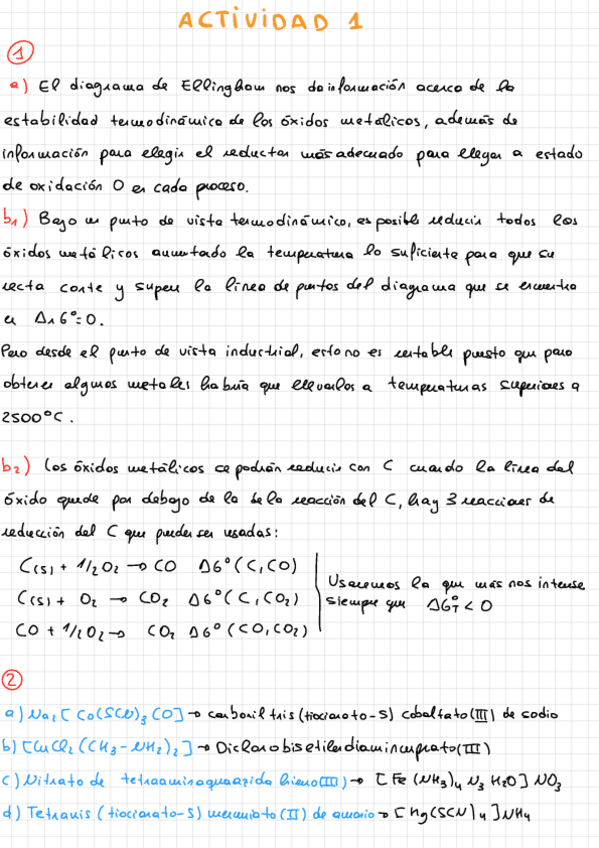 ACTIVIDAD 1
1
a) El diagrama de Ellingham nos da información acerca de la
estabilidad termodinámica de los óxidos metálicos, además de
información para elegir el reductor más adecuado para llegar a estado
de oxidación 0 en cada proceso.
b1) Bajo un punto de vista termodinámico, es posible reducir todos los
óxidos metálicos aumentado la temperatura lo suficiente para que su
recta corte y supere la línea de puntos del diagrama que se encuentra
en Δ1G°=0.
Pero desde el punto de vista industrial, esto no es rentable puesto que para
obtener algunos metales habría que elevarlos a temperaturas superiores a
2500°C.
b2) Los óxidos metálicos se podrán reducir con C cuando la línea del
óxido quede por debajo de la de la reacción del C, hay 3 reacciones de
reducción del C que pueden ser usadas:
C(s) + 1/2 O2 → CO ΔG°(C,CO)
C(s) + O2 → CO2 ΔG°(C,CO2)
CO + 1/2 O2 → CO2 ΔG°(CO,CO2)
Usaremos la que más nos interese
siempre que ΔG°T < 0
2
a) Na2[Co(SCN)3CO] → carbonil tris(tiocianato-S) cobaltato(III) de sodio
b) [CuCl2(CH3-NH2)2] → Diclorobisetilendiamincuprato(III)
c) Nitrato de tetraaminaquaazida hierro(III) → [Fe(NH3)4 N3 H2O] NO3
d) Tetranis (tiocianato-S) mercuriato (II) de amonio → [Hg(SCN)4]NH4